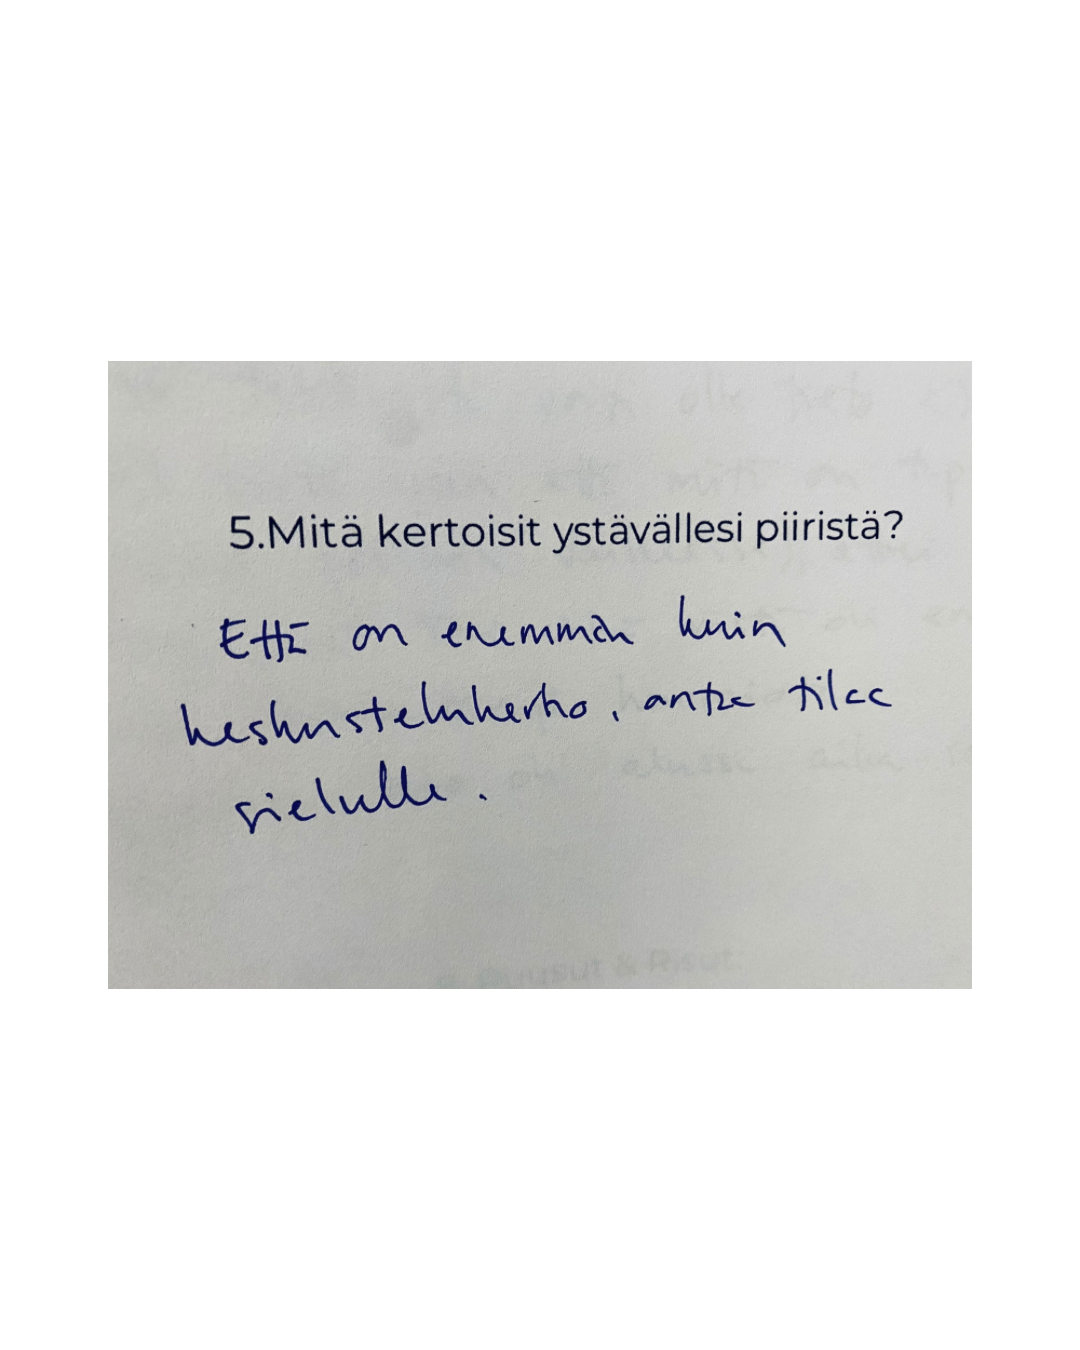 5.Mitä kertoisit ystävällesi piiristä?
Että on enemmän kuin
keskustelukerho, antaa tilaa
sielulle.